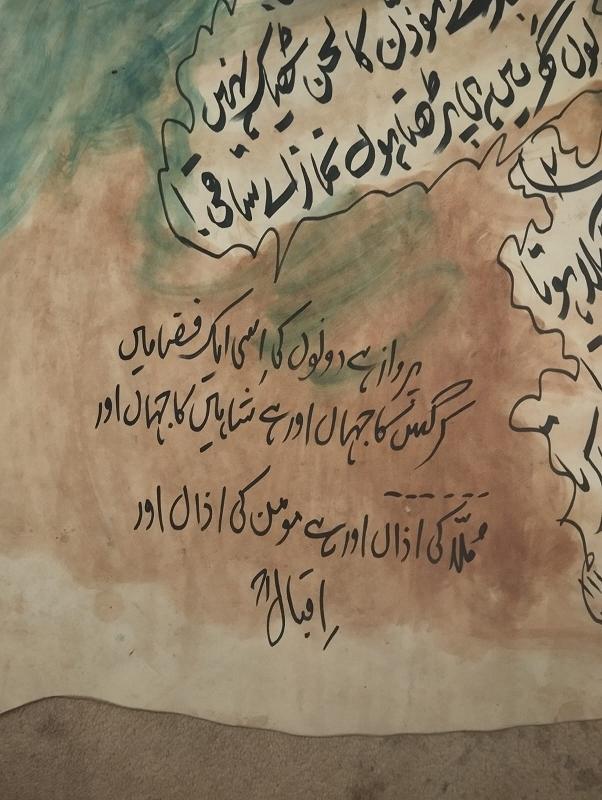 مؤذن کا لحن ٹھیک نہیں
گھر میں ہی پڑھتا ہوں نماز اے ساقی!
ہوتا
پرواز ہے دونوں کی اِسی ایک فضا میں
کرگس کا جہاں اور ہے شاہیں کا جہاں اور
مُلّا کی اذاں اور ہے مومن کی اذاں اور
اِقبالؒ